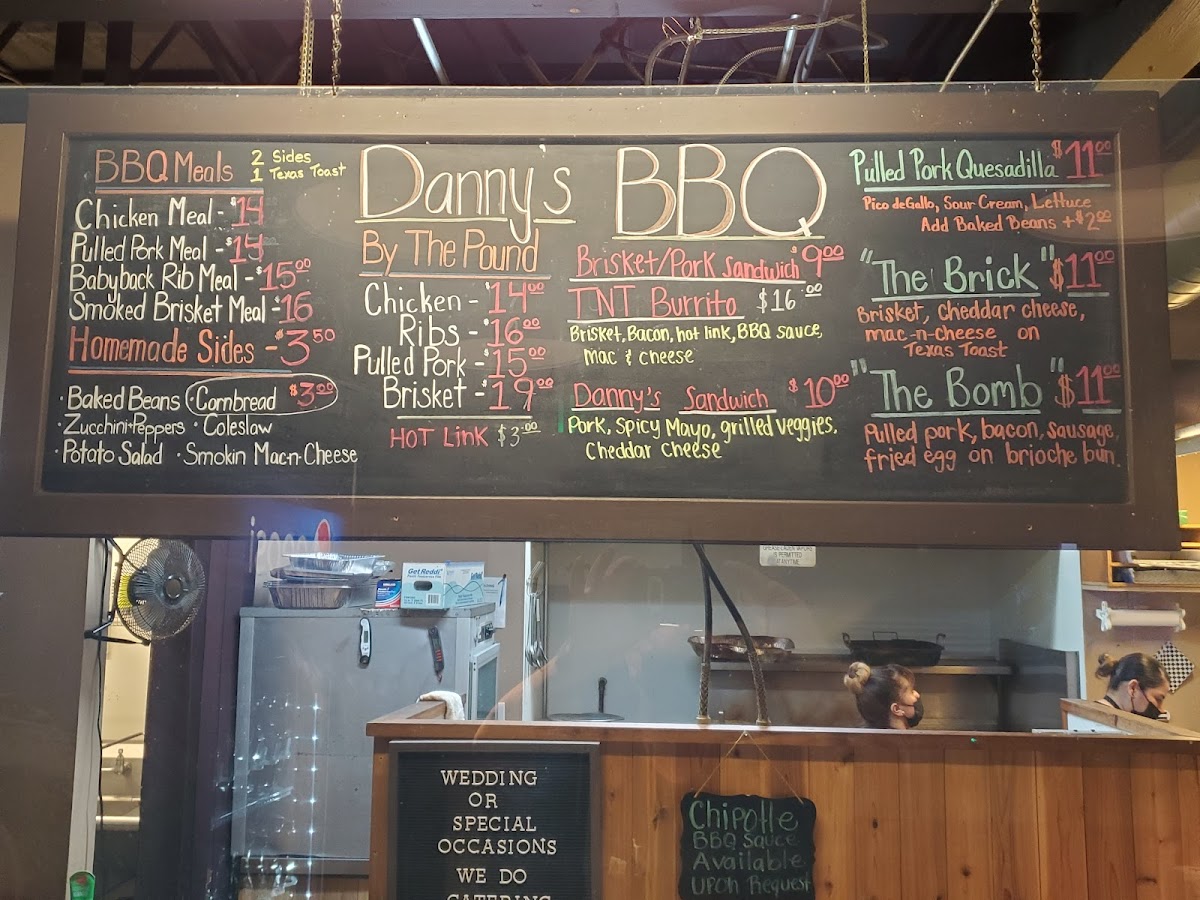 BBQ Meals 2 Sides
1 Texas Toast
Chicken Meal - $14
Pulled Pork Meal - $14
Babyback Rib Meal - $15.00
Smoked Brisket Meal - $16
Homemade Sides - $3.50
· Baked Beans · Cornbread $3.00
· Zucchini+Peppers · Coleslaw
· Potato Salad · Smokin Mac-n-Cheese
Danny's BBQ
By The Pound
Chicken - $14.00
Ribs - $16.00
Pulled Pork - $15.00
Brisket - $19.00
HOT LINK $3.00
Brisket/Pork Sandwich $9.00
TNT Burrito $16.00
Brisket, Bacon, hot link, BBQ sauce,
Mac & cheese
Danny's Sandwich $10.00
Pork, Spicy Mayo, grilled veggies.
Cheddar cheese
Pulled Pork Quesadilla $11.00
Pico de Gallo, Sour Cream, Lettuce
Add Baked Beans +$2.00
"The Brick" $11.00
Brisket, Cheddar cheese,
mac-n-cheese on
Texas Toast
"The Bomb" $11.00
Pulled pork, bacon, sausage,
fried egg on brioche bun.
Get Reddi
IS PERMITTED
WEDDING
OR
SPECIAL
OCCASIONS
WE DO
CATERING
Chipotle
BBQ Sauce
Available
Upon Request